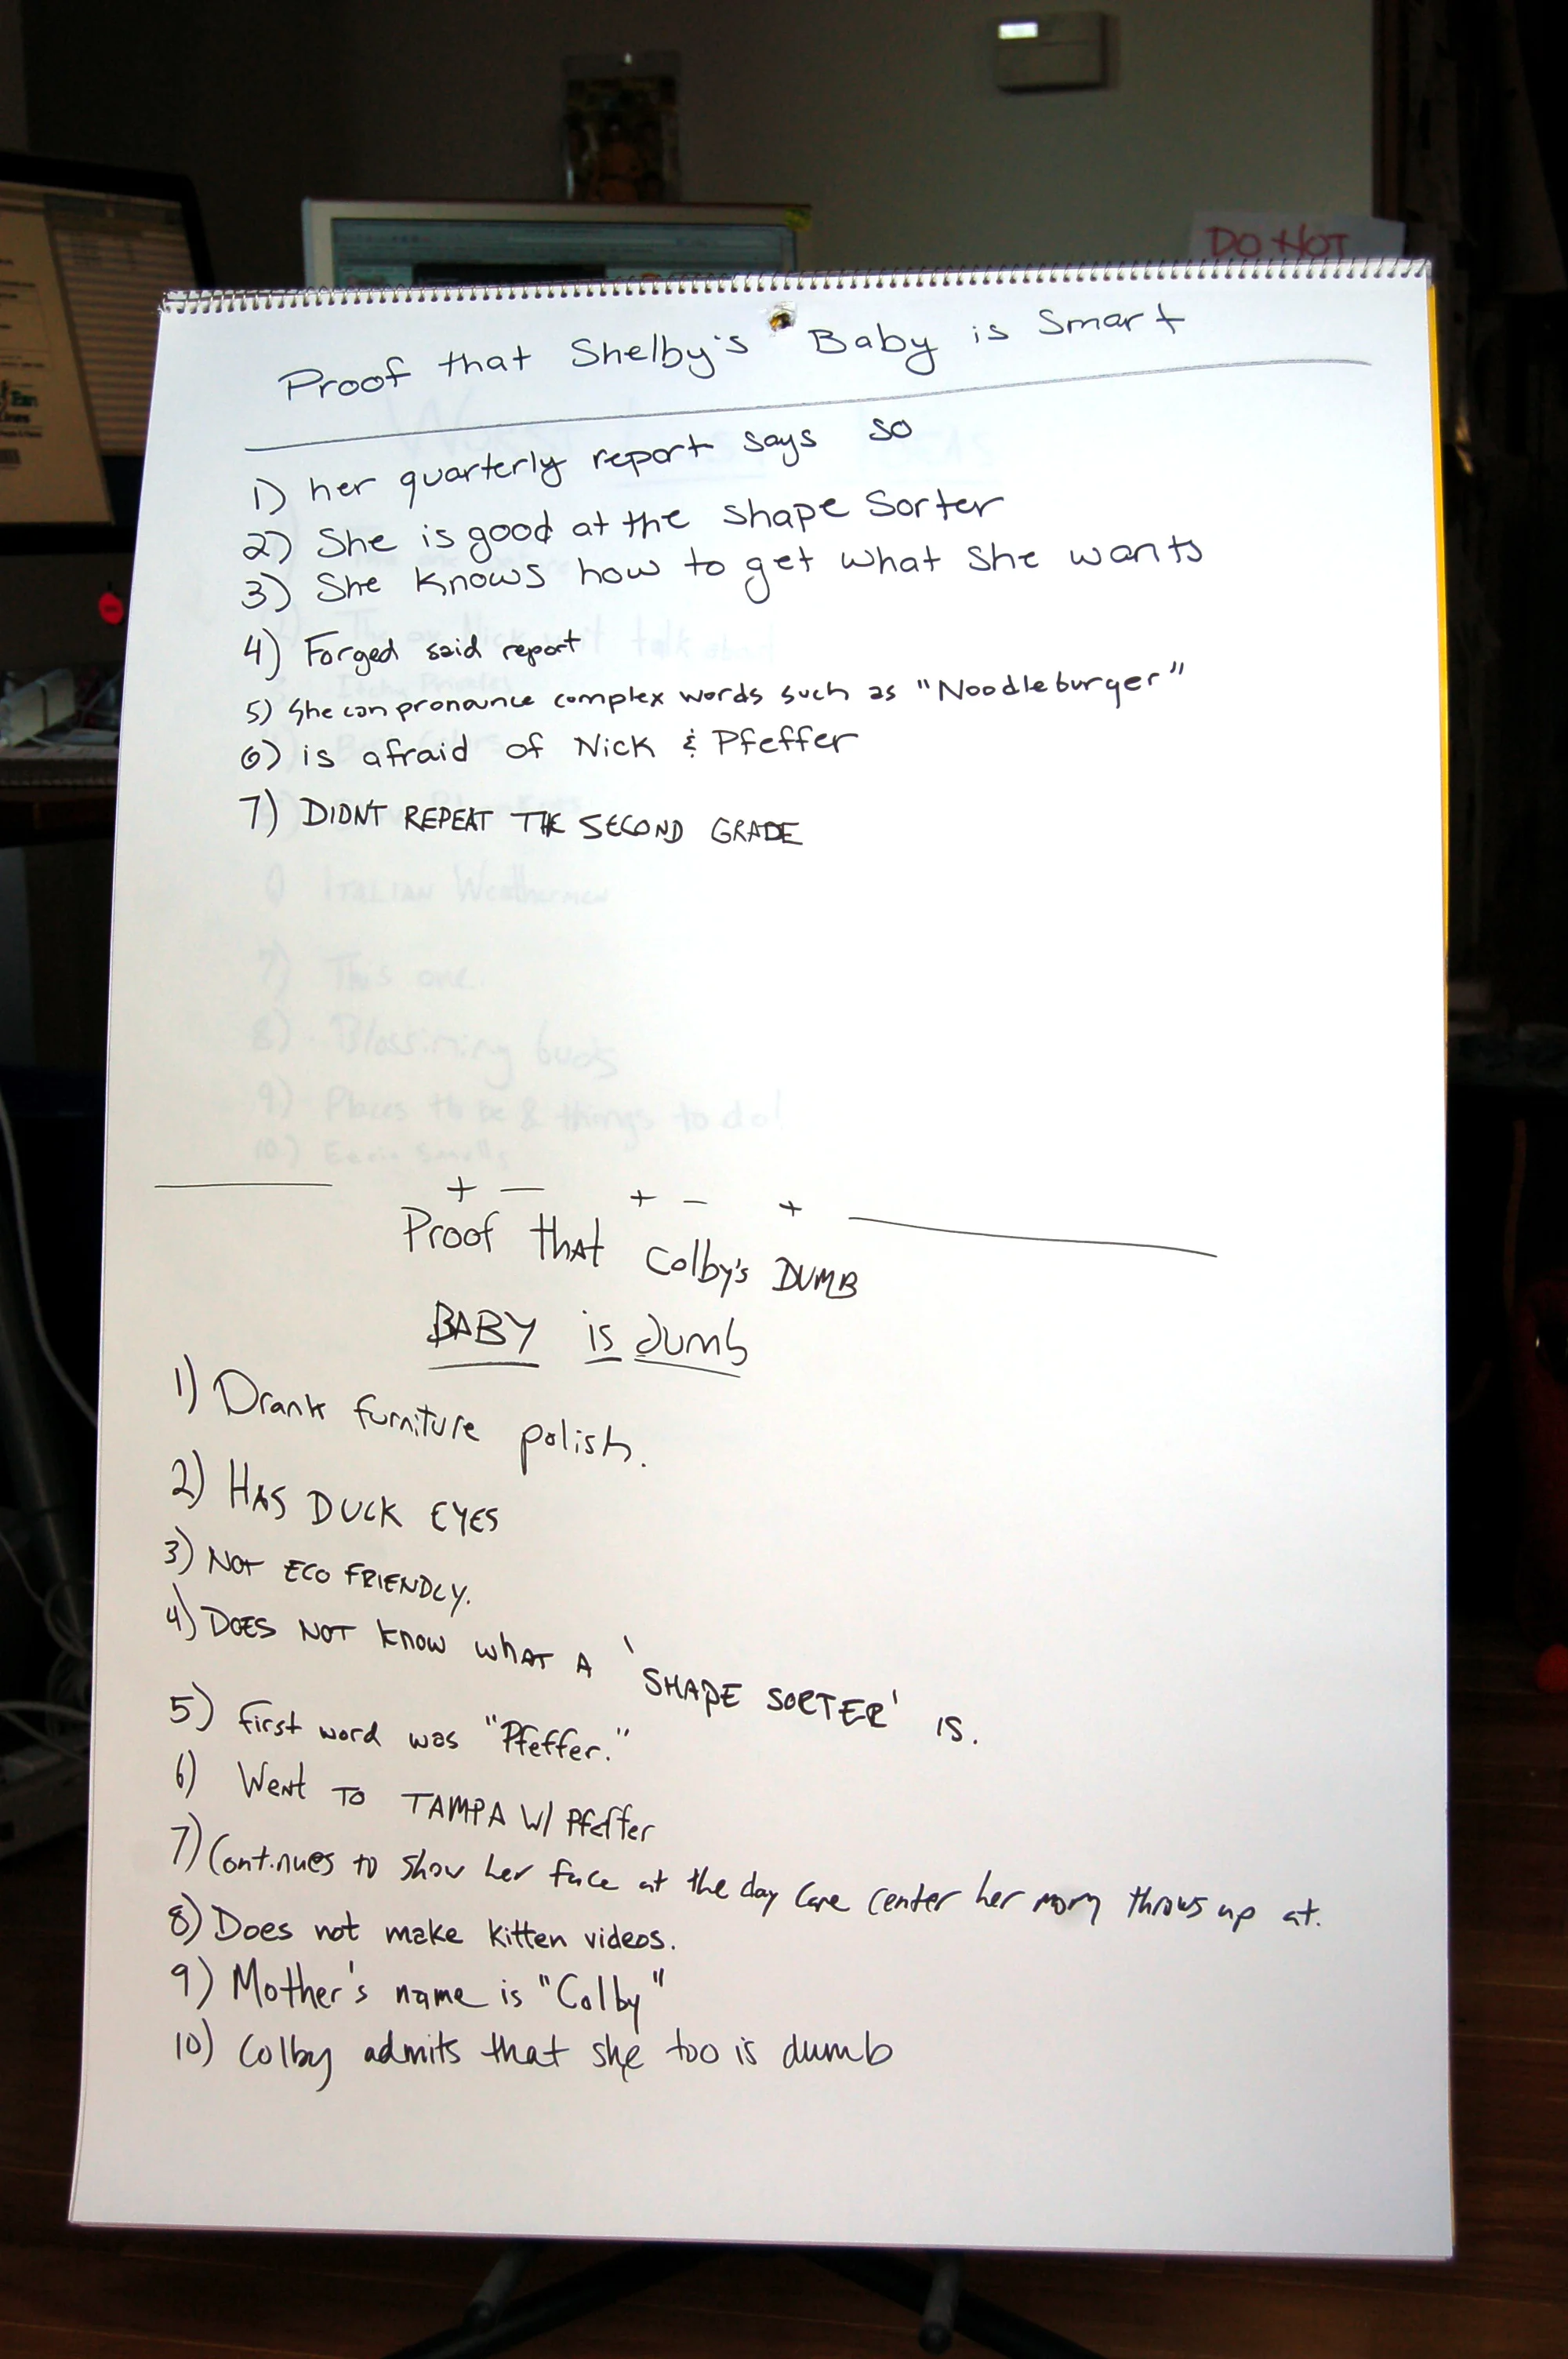 DO NOT
Proof that Shelby's Baby is Smart
1) her quarterly report says so
2) She is good at the shape Sorter
3) She knows how to get what she wants
4) Forged said report
5) She can pronounce complex words such as "Noodleburger"
6) is afraid of Nick & Pfeffer
7) DIDN'T REPEAT THE SECOND GRADE
6) ITALIAN Weathermen
7) This one.
8) Blossiming buds
9) Places to be & things to do!
10)
+ — + – +
Proof that Colby's DUMB
BABY is dumb
1) Drank furniture polish.
2) HAS DUCK EYES
3) NOT ECO FRIENDLY.
4) DOES NOT know what A 'SHAPE SORTER' IS.
5) first word was "Pfeffer."
6) Went TO TAMPA W/ Pfeffer
7) Continues to show her face at the day care center her mom throws up at.
8) Does not make kitten videos.
9) Mother's name is "Colby"
10) Colby admits that she too is dumb